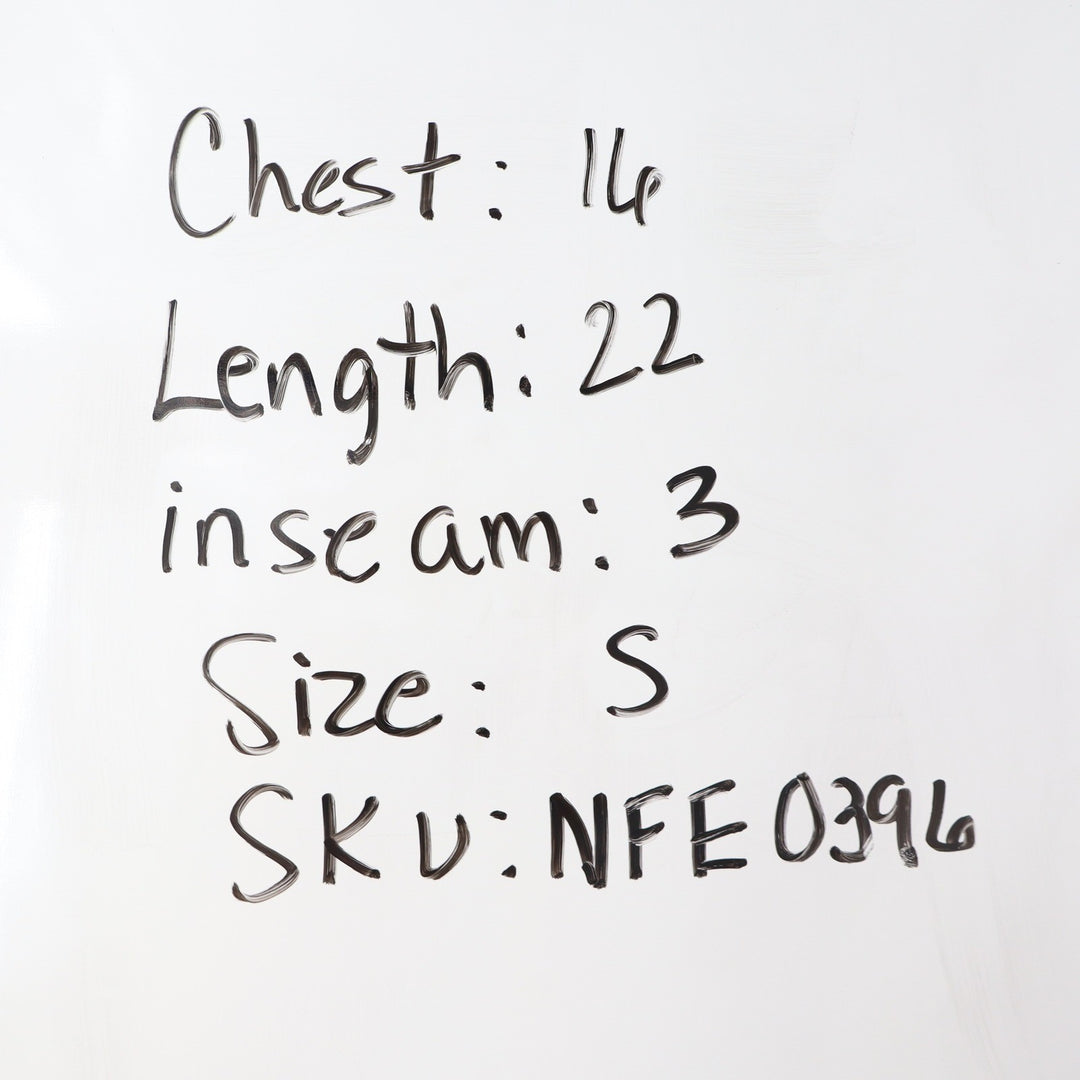 Chest: 16
Length: 22
inseam: 3
Size: S
SKU: NFE0396